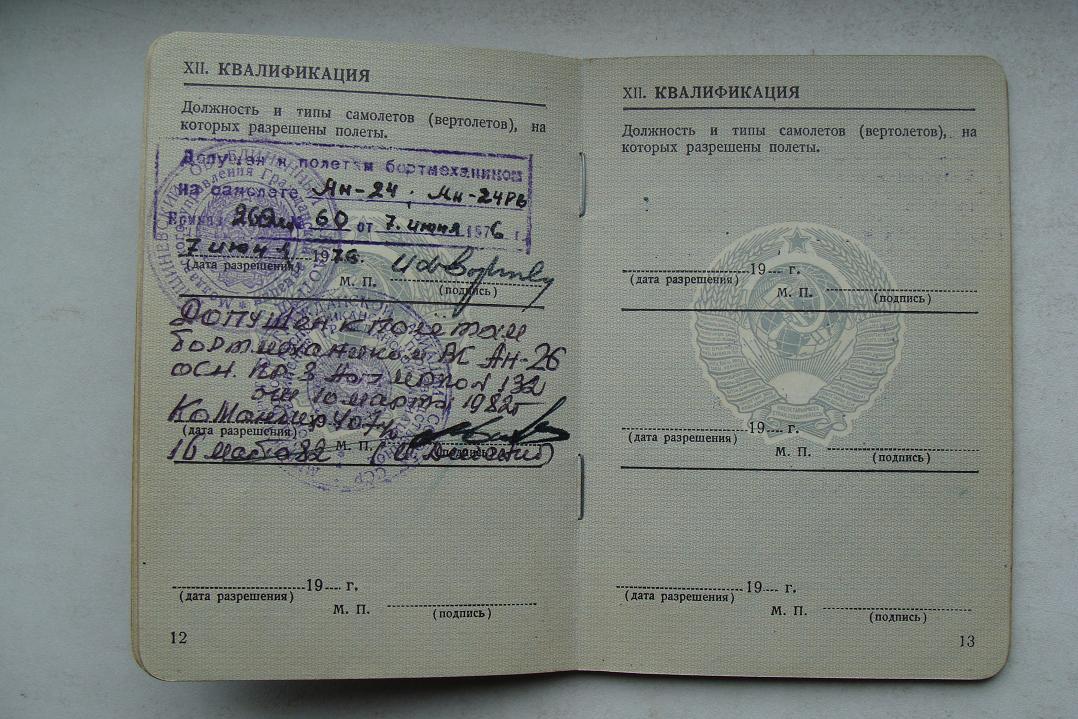 XII. КВАЛИФИКАЦИЯ
Должность и типы самолетов (вертолетов), на
которых разрешены полеты.
Допущен к полетам бортмехаником
на самолете Ан-24, Ан-24РВ
60 от 7. июня 1976 г.
7 июня 1976.
(дата разрешения)
М. П.
(подпись)
Допущен к полетам
бортмехаником ВС Ан-26
осн. 132
от 10 марта 1982г
Командир 407
(дата разрешения)
М. П.
(подпись)
16 марта 82
19 г.
(дата разрешения)
М. П.
(подпись)
12
XII. КВАЛИФИКАЦИЯ
Должность и типы самолетов (вертолетов), на
которых разрешены полеты.
19 г.
(дата разрешения)
М. П.
(подпись)
19 г.
(дата разрешения)
М. П.
(подпись)
19 г.
(дата разрешения)
М. П.
(подпись)
13